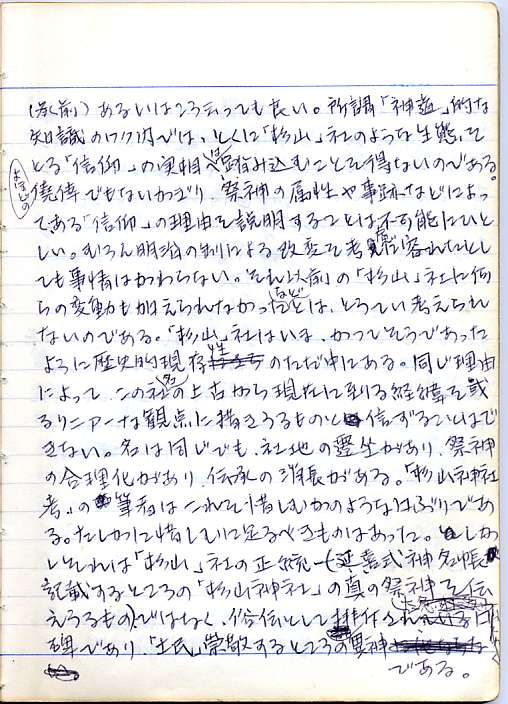 (承前) あるいはこう云っても良い。所謂「神道」的な
知識のワク内では、とくに「杉山」社のような生態を
とる「信仰」の実相は踏み込むことを得ないのである。
よほどの
僥倖でもないかぎり、祭神の属性や事跡などによっ
てある「信仰」の理由を説明することは不可能にひと
しい。むろん明治の制による改変を考慮に容れたとし
ても事情はかわらない。それ以前の「杉山」社に何
らの変動も加えられなかったなどとは、とうてい考えられ
ないのである。「杉山」社はいま、かつてそうであった
ように歴史的現存性のただ中にある。同じ理由
によって、この社名の上古から現在に到る経緯を或
るリニアーな観点に描きうるものと信ずることはで
きない。名は同じでも、社地の遷坐があり、祭神
の合理化があり、伝承の消長がある。「杉山神社
考」の筆者はこれを惜しむかのようなくちぶりであ
る。たしかに惜しむに足るべきものはあった。しか
しそれは「杉山」社の正統―(延喜式神名帳
記載するところの「杉山神社」の真の祭神を伝
えうるもの)ではなく、俗伝として排斥されている口
碑であり、「土民」崇敬するところの異神
である。